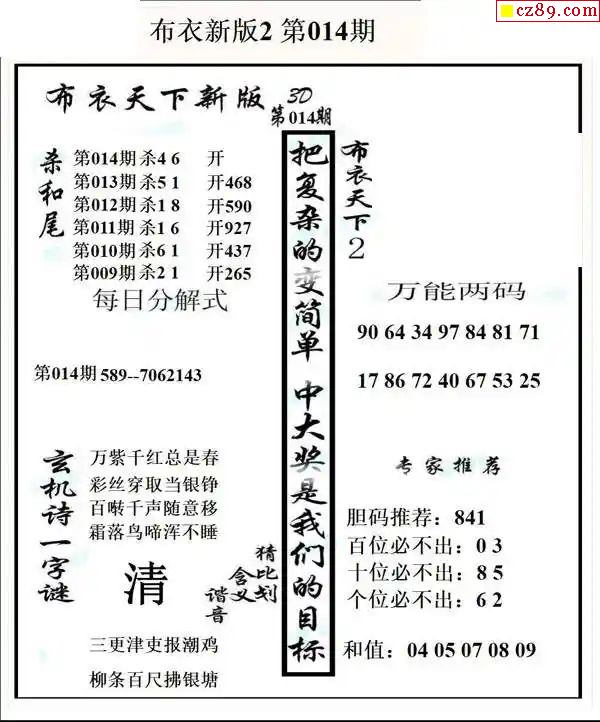 cz89.com
布衣新版2 第014期
布衣天下新版 3D
第014期
杀和尾
第014期 杀4 6 开
第013期 杀5 1 开468
第012期 杀1 8 开590
第011期 杀1 6 开927
第010期 杀6 1 开437
第009期 杀2 1 开265
每日分解式
第014期 589--7062143
玄机诗一字谜
万紫千红总是春
彩丝穿取当银铮
百啭千声随意移
霜落鸟啼浑不睡
清
猜比划
含义
谐音
三更津吏报潮鸡
柳条百尺拂银塘
把复杂的变简单 中大奖是我们的目标
布衣天下2
万能两码
90 64 34 97 84 81 71
17 86 72 40 67 53 25
专家推荐
胆码推荐：841
百位必不出：0 3
十位必不出：8 5
个位必不出：6 2
和值：04 05 07 08 09